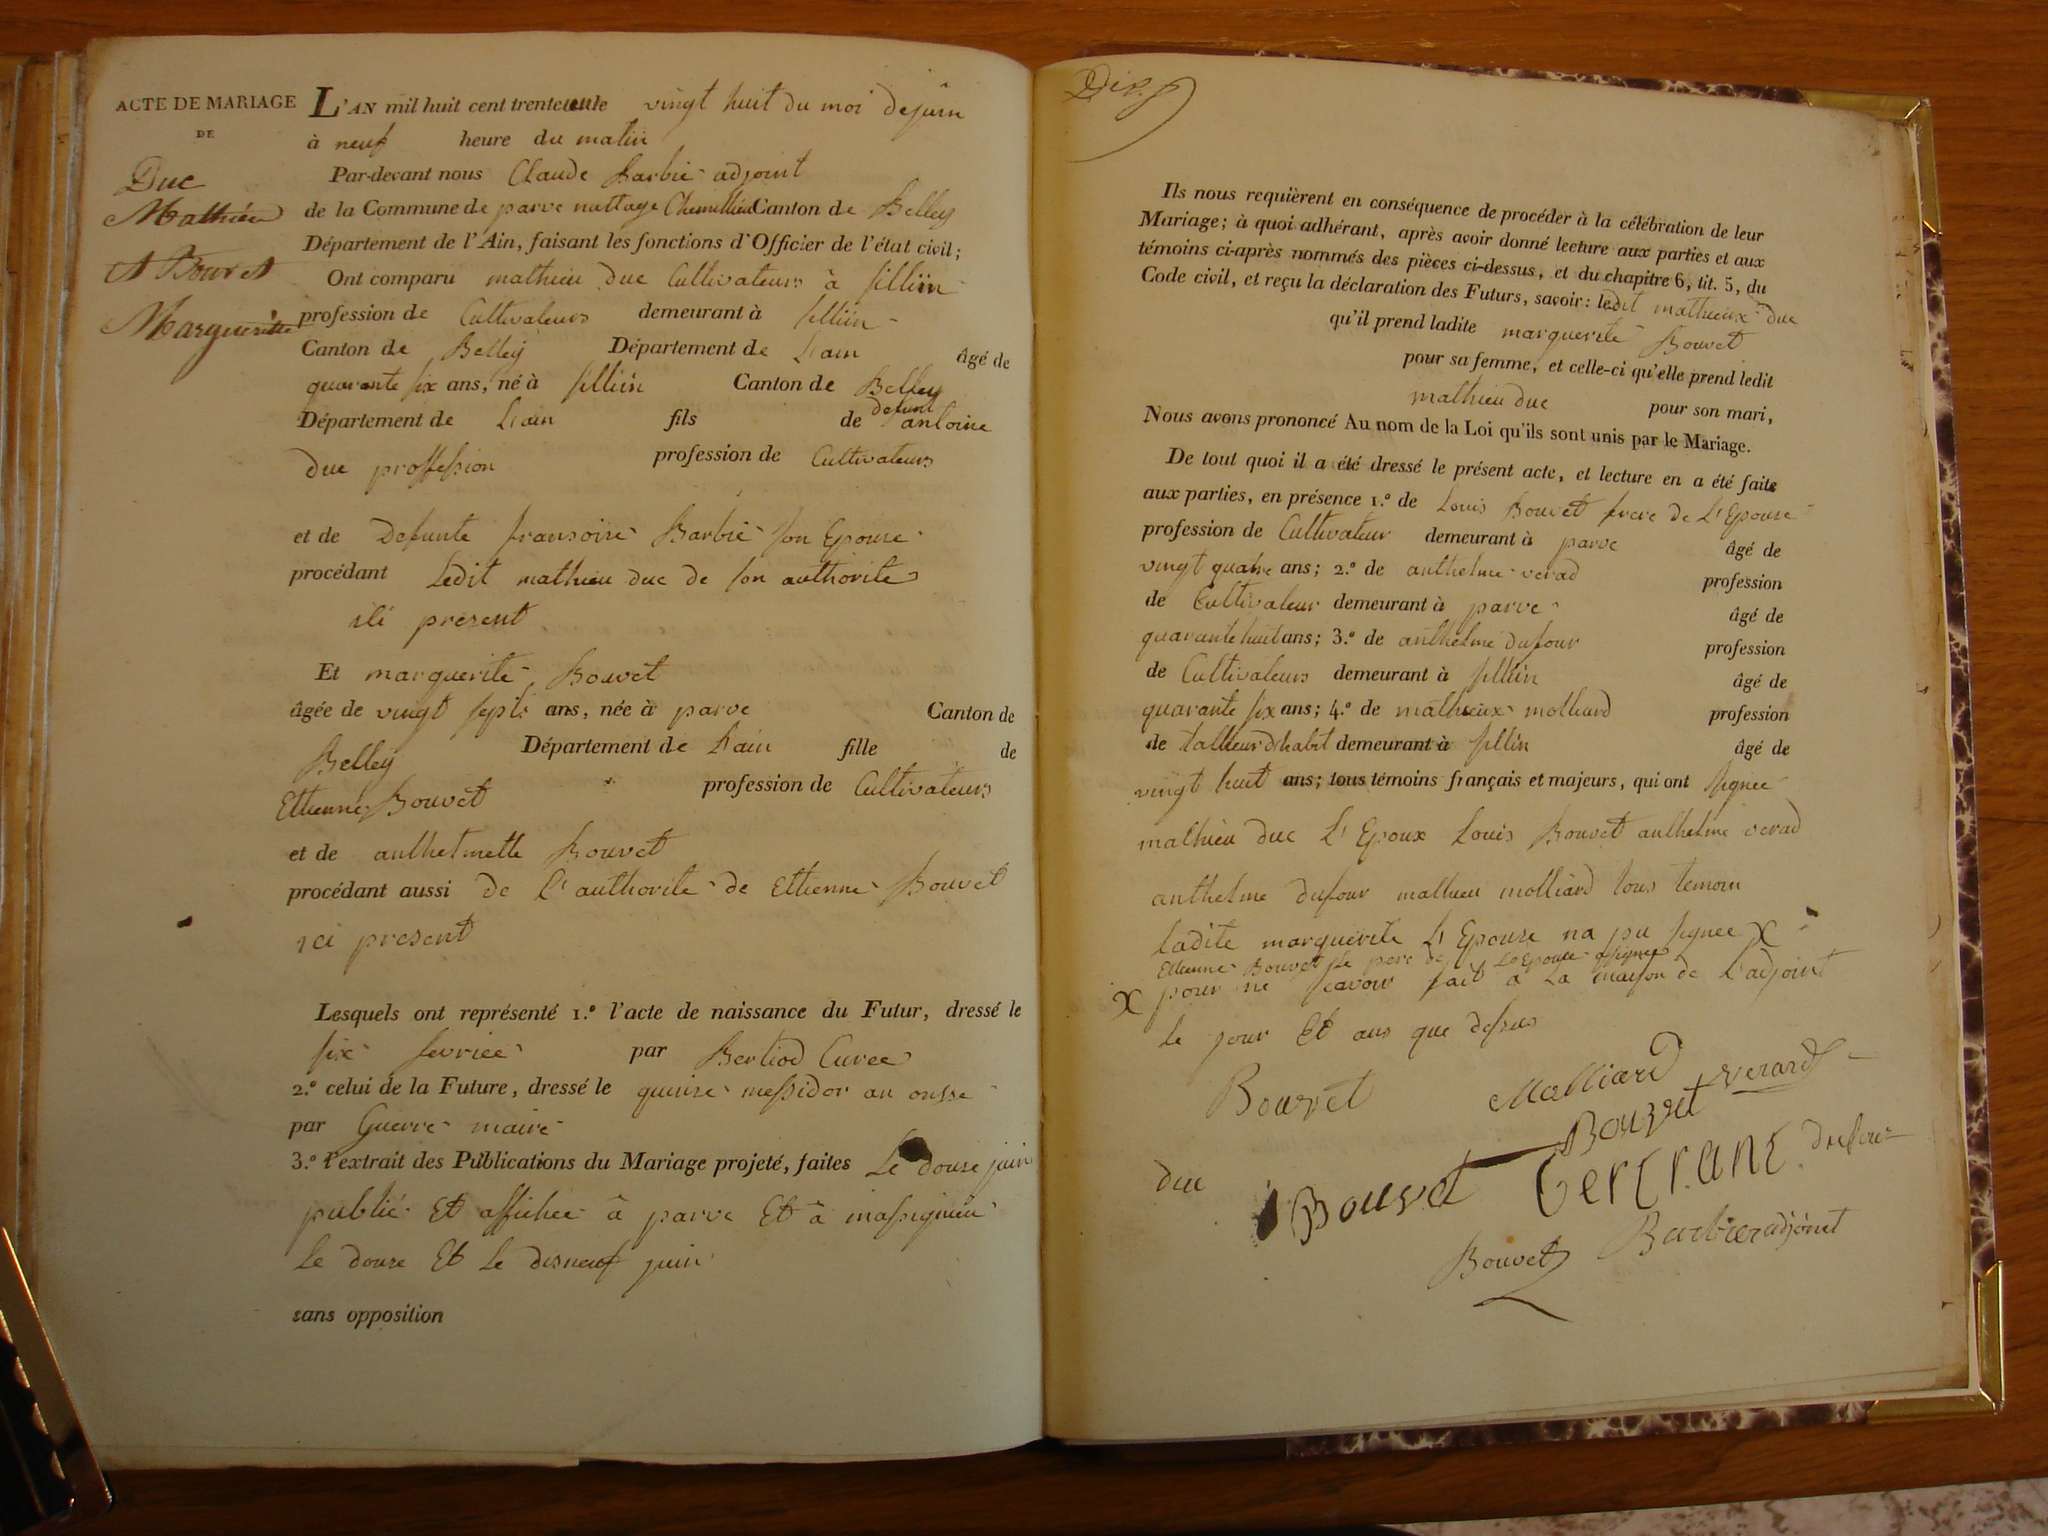 ACTE DE MARIAGE
DE
Duc
Mathieu
Et Bouvet
Marguerite
L'AN mil huit cent trente vingt huit du moi dejuin
à neuf heure du matin
Par-devant nous Claude Barbié adjoint
de la Commune de parve nattage Chemillieu Canton de Belley
Département de l'Ain, faisant les fonctions d'Officier de l'état civil;
Ont comparu mathieu duc Cultivateurs à sillin
profession de Cultivateurs demeurant à sillin
Canton de Belley Département de L'ain âgé de
quarante six ans, né à sillin Canton de Belley
Département de L'ain fils de defunt antoine
duc proffession profession de Cultivateurs
et de Defunte fransoise Barbié son Epouse
procédant Ledit mathieu duc de son authorite
ili present
Et marguerite Bouvet
âgée de vingt septs ans, née à parve Canton de
Belley Département de L'ain fille de
Etienne Bouvet profession de Cultivateurs
et de anthelmette Bouvet
procédant aussi de L'authorite de Ettienne Bouvet
ici present
Lesquels ont représenté 1.º l'acte de naissance du Futur, dressé le
six fevriee par Berliod Curee
2.º celui de la Future, dressé le quinse messidor an onsse
par Guerre maire
3.º l'extrait des Publications du Mariage projeté, faites Le douse juin
publié Et affichee à parve Et à massignieu
le douse Et Le disneuf juin
sans opposition
Ils nous requièrent en conséquence de procéder à la célébration de leur
Mariage; à quoi adhérant, après avoir donné lecture aux parties et aux
témoins ci-après nommés des pièces ci-dessus, et du chapitre 6, tit. 5, du
Code civil, et reçu la déclaration des Futurs, savoir: ledit mathieux duc
qu'il prend ladite marguerite Bouvet
pour sa femme, et celle-ci qu'elle prend ledit
mathieu duc pour son mari,
Nous avons prononcé Au nom de la Loi qu'ils sont unis par le Mariage.
De tout quoi il a été dressé le présent acte, et lecture en a été faite
aux parties, en présence 1.º de Louis Bouvet frere de L'Epouse
profession de Cultivateur demeurant à parve âgé de
vingt quatre ans; 2.º de anthelme verad profession
de Cultivateur demeurant à parve âgé de
quarante huit ans; 3.º de anthelme dufour profession
de Cultivateurs demeurant à sillin âgé de
quarante six ans; 4.º de mathieux molliard profession
de tallieur Dhabit demeurant à sillin âgé de
vingt huit ans; tous témoins français et majeurs, qui ont signee
mathieu duc L'Epoux Louis Bouvet anthelme verad
anthelme dufour mathieu molliard tous temoin
ladite marguerite L'Epouse na pu signee X
Ettienne Bouvet le pere de L'Epouse signee
X pour ne scavoir fait à La maison de L'adjoint
le jour Et ans que dessus
Bouvet Molliard Verard
Bouvet
duc Bouvet dufour
Bouvet Barbier adjoint